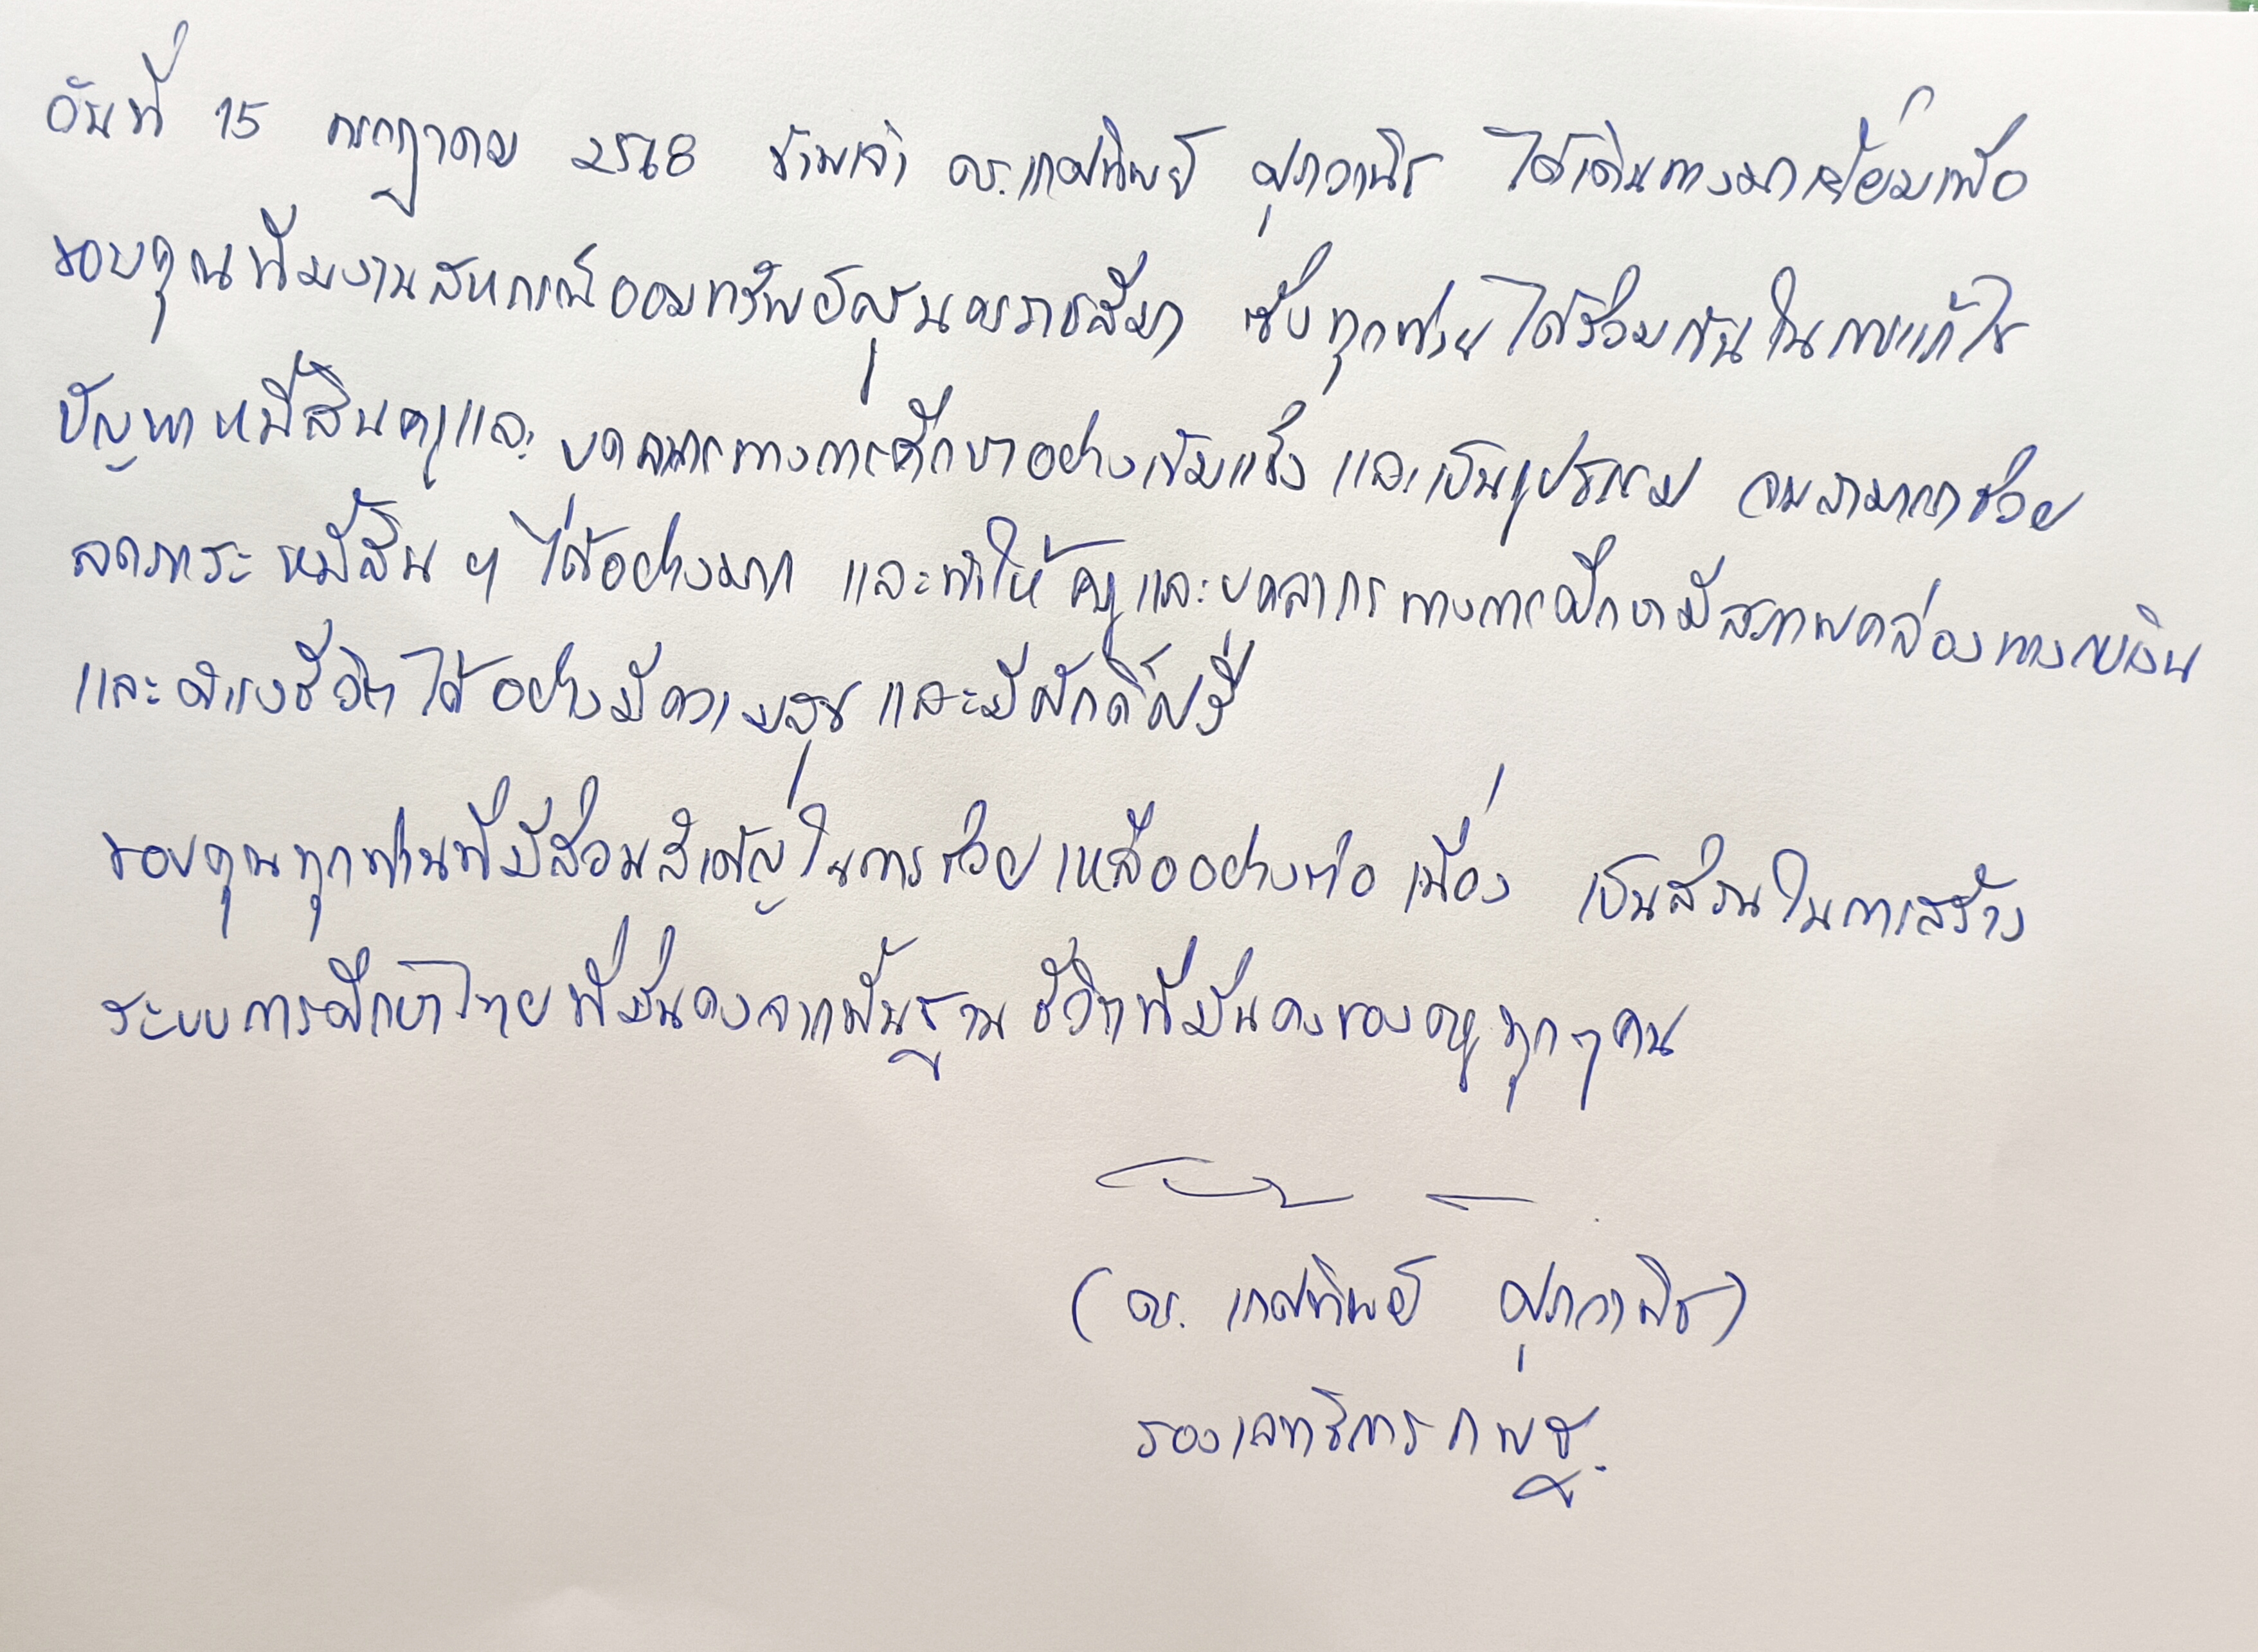 วันที่ 15 กรกฎาคม 2568 ข้าพเจ้า ดร.เกศทิพย์ ศุภวานิช ได้เดินทางมาเยี่ยมเพื่อ
ขอบคุณทีมงานสหกรณ์ออมทรัพย์ครูนครราชสีมา ซึ่งทุกฝ่ายได้ร่วมกันในการแก้ไข
ปัญหาหนี้สินครูและบุคลากรทางการศึกษาอย่างเข้มแข็ง และเป็นรูปธรรม จนสามารถช่วย
ลดภาระหนี้สิน ฯ ได้อย่างมาก และทำให้ครูและบุคลากรทางการศึกษามีสภาพคล่องทางการเงิน
และดำรงชีวิตได้อย่างมีความสุข และมีศักดิ์ศรี
ขอบคุณทุกท่านที่มีส่วนสำคัญในการช่วยเหลืออย่างต่อเนื่อง เป็นส่วนในการสร้าง
ระบบการศึกษาไทยที่มั่นคงจากพื้นฐานชีวิตที่มั่นคงของครูทุกๆคน
(ดร. เกศทิพย์ ศุภวานิช)
รองเลขาธิการ กพฐ.